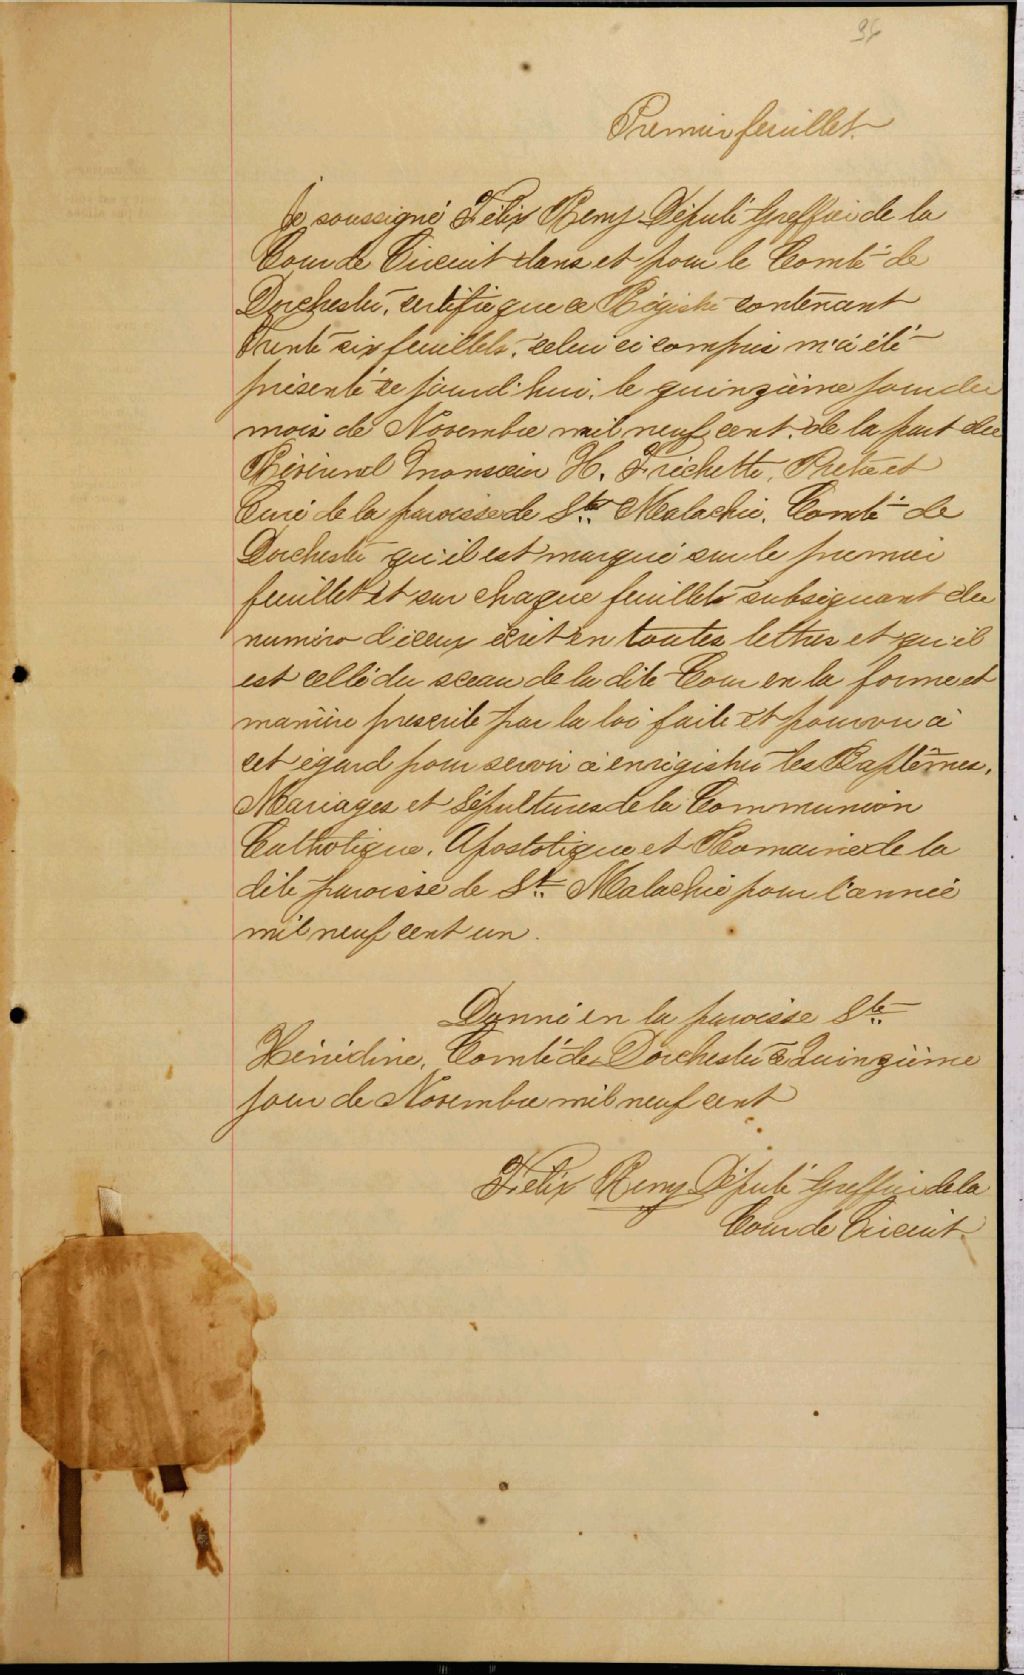 36
Premier feuillet.
Je soussigné Félix Remy Député Greffier de la
Cour de Circuit dans et pour le Comté de
Dorchester, certifie que ce Régistre contenant
Trente six feuillets, celui ci compris m'a été
présenté ce jourd'hui, le quinzième jour du
mois de Novembre mil neuf cent, de la part du
Révérend Monsieur H. Fréchette, Prêtre et
Curé de la paroisse de Ste Malachie, Comté de
Dorchester qu'il est marqué sur le premier
feuillet et sur chaque feuillet subséquant du
numéro d'iceux écrit en toutes lettres et qu'il
est cellé du sceau de la dite Cour en la forme et
manière prescrite par la loi faite et pourvu à
cet égard pour servir à enrégistrer les Baptêmes,
Mariages et Sépultures de la Communion
Catholique, Apostolique et Romaine de la
dite paroisse de St. Malachie pour l'année
mil neuf cent un.
Donné en la paroisse Ste
Hénédine, Comté de Dorchester ce Quinzième
jour de Novembre mil neuf cent
Félix Remy Député Greffier de la
Cour de Circuit.